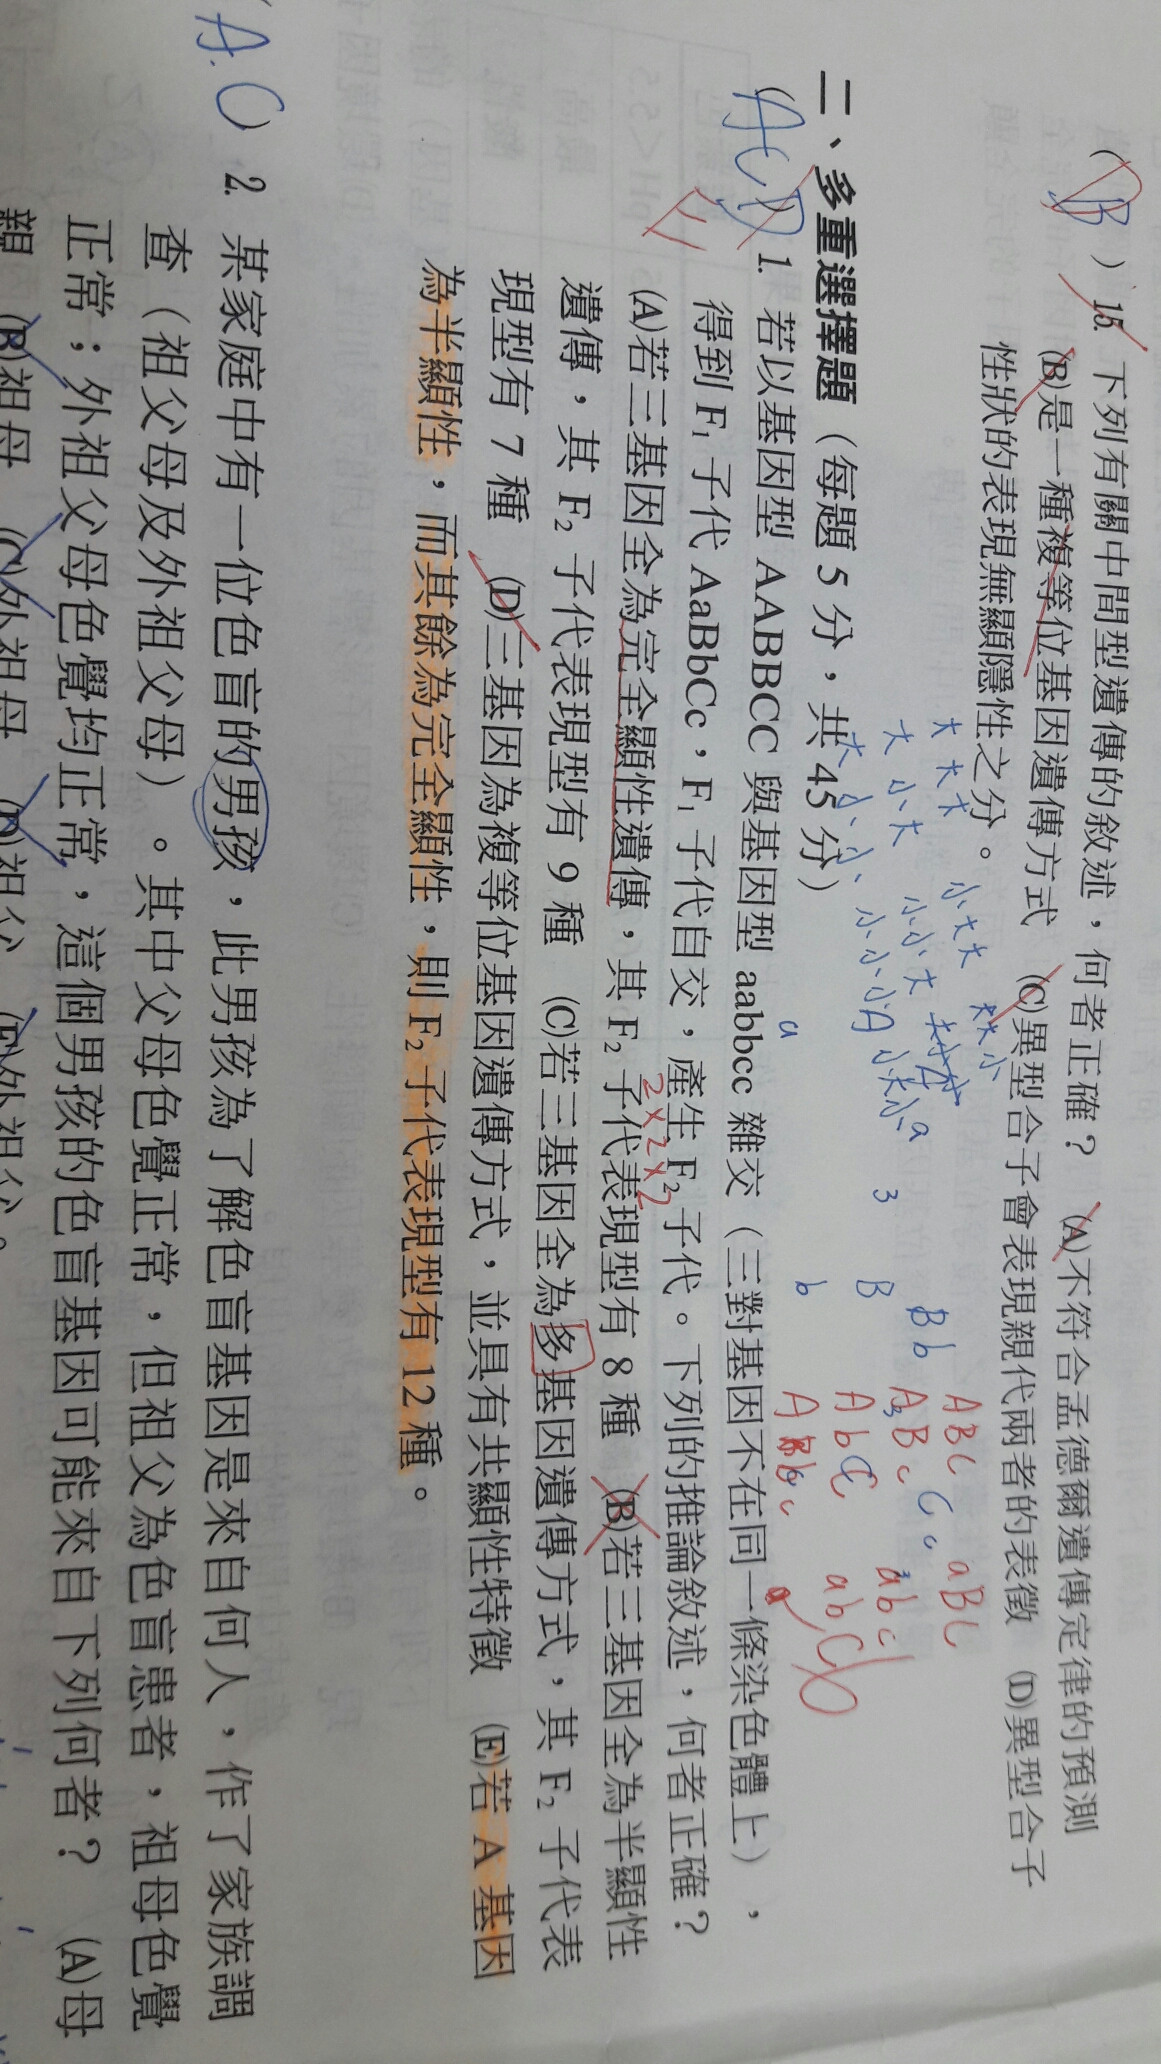 (B) 15. 下列有關中間型遺傳的敘述，何者正確？ (A)不符合孟德爾遺傳定律的預測
(B)是一種複等位基因遺傳方式 (C)異型合子會表現親代兩者的表徵 (D)異型合子
性狀的表現無顯隱性之分。
大大大 小大大 大大小
大小大 小小大
大小小 小小小 小大小
A a 3 B b
a b B b C c
ABC aBC
ABc abc
AbC abC
Abc
二、多重選擇題（每題 5 分，共 45 分）
(ACD) 1. 若以基因型 AABBCC 與基因型 aabbcc 雜交（三對基因不在同一條染色體上），
得到 F₁ 子代 AaBbCc，F₁ 子代自交，產生 F₂ 子代。下列的推論敘述，何者正確？
E
2×2×2
(A)若三基因全為完全顯性遺傳，其 F₂ 子代表現型有 8 種 (B)若三基因全為半顯性
遺傳，其 F₂ 子代表現型有 9 種 (C)若三基因全為多基因遺傳方式，其 F₂ 子代表
現型有 7 種 (D)三基因為複等位基因遺傳方式，並具有共顯性特徵 (E)若 A 基因
為半顯性，而其餘為完全顯性，則 F₂ 子代表現型有 12 種。
(A.C) 2. 某家庭中有一位色盲的男孩，此男孩為了解色盲基因是來自何人，作了家族調
查（祖父母及外祖父母）。其中父母色覺正常，但祖父為色盲患者，祖母色覺
正常；外祖父母色覺均正常，這個男孩的色盲基因可能來自下列何者？ (A)母
親 (B)祖母 (C)外祖母 (D)祖父 (E)外祖父。